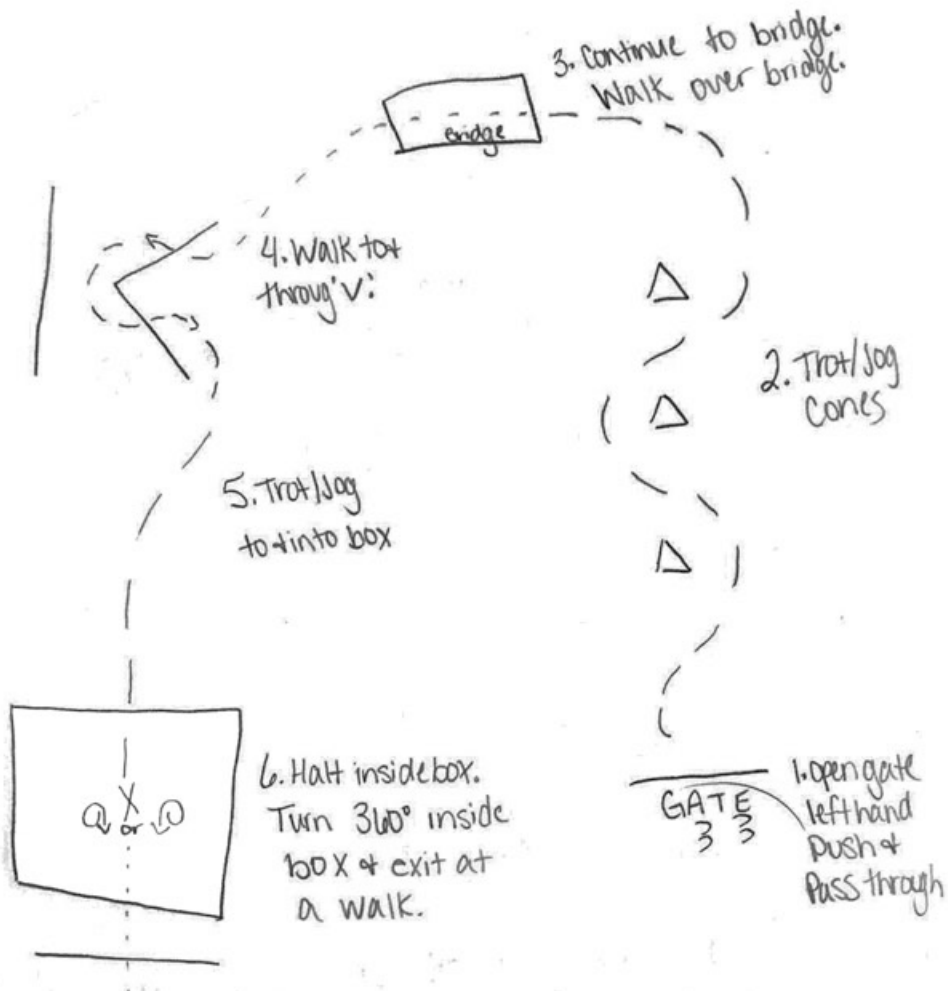 3. Continue to bridge.
Walk over bridge.
Bridge
4. Walk to+
throug 'V'.
2. Trot/Jog
Cones
5. Trot/Jog
to + into box
6. Halt inside box.
Turn 360° inside
box + exit at
a walk.
X
or
GATE
1. open gate
left hand
push +
Pass through